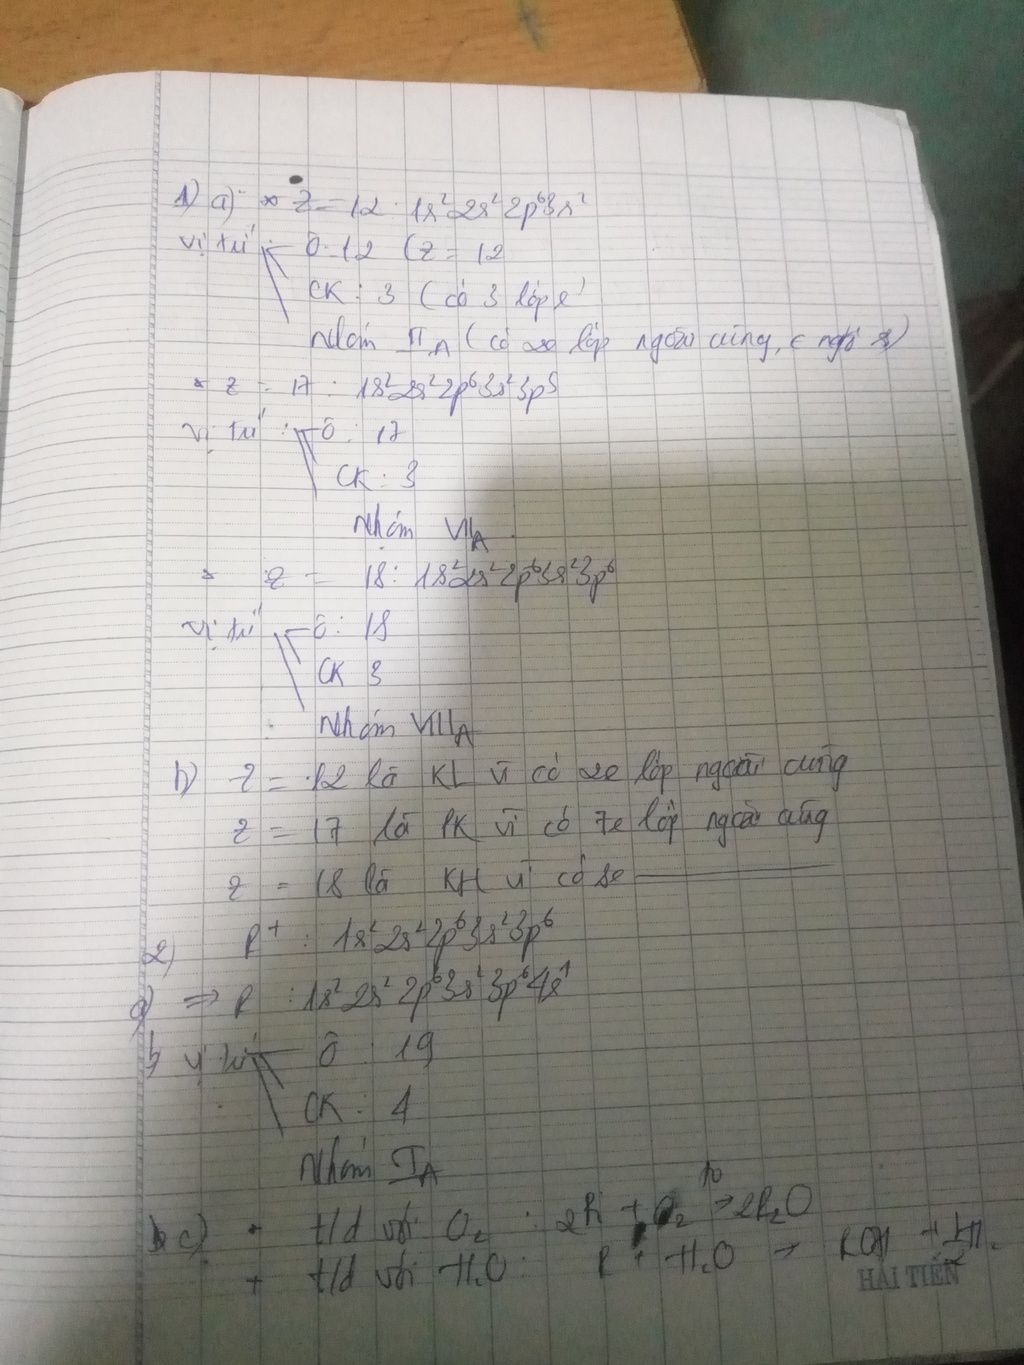 1) a) * Z = 12: 1s² 2s² 2p⁶ 3s²
vị trí Ô: 12 (Z = 12
CK: 3 (có 3 lớp e)
Nhóm II A (có 2e lớp ngoài cùng, )
* Z = 17: 1s² 2s² 2p⁶ 3s² 3p⁵
vị trí: Ô: 17
CK: 3
Nhóm VII A
* Z = 18: 1s² 2s² 2p⁶ 3s² 3p⁶
vị trí Ô: 18
CK 3
Nhóm VIII A
b) Z = 12 là KL vì có 2e lớp ngoài cùng
Z = 17 là PK vì có 7e lớp ngoài cùng
Z = 18 là KH vì có 8e
2) R⁺: 1s² 2s² 2p⁶ 3s² 3p⁶
a) ⇒ R: 1s² 2s² 2p⁶ 3s² 3p⁶ 4s¹
b vị trí Ô: 19
CK: 4
Nhóm I A
c) + t/d với O₂: 2R + O₂ → 2R₂O
+ t/d với H₂O: R + H₂O → ROH +
HẢI TIẾN